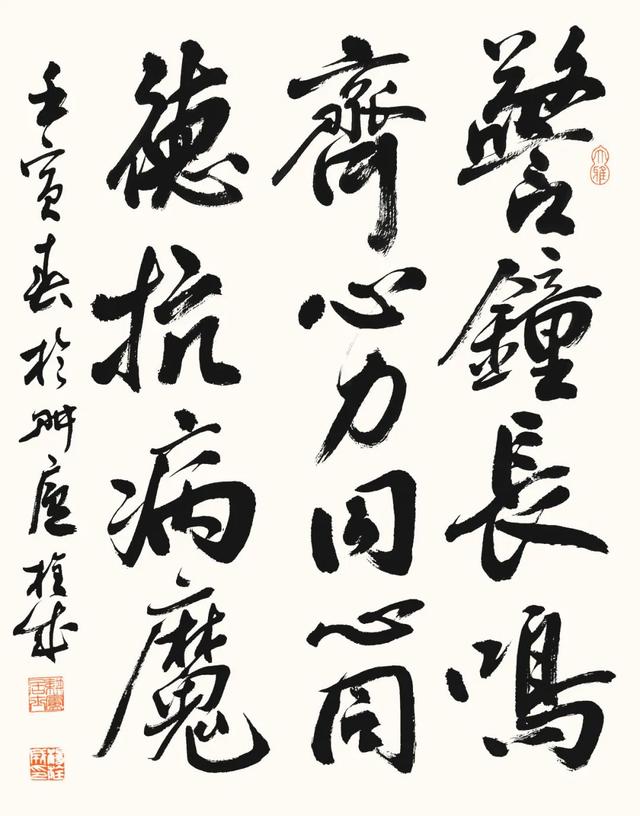 警鐘長鳴
齊心力同心同
德抗病魔
壬寅春於廬
大雅